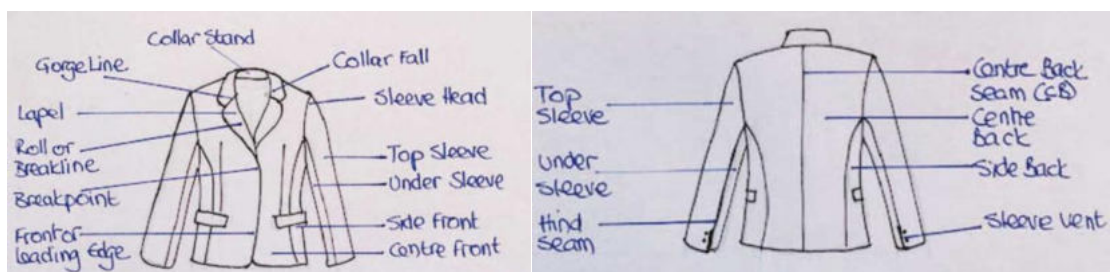 Collar Stand
Gorge Line
Collar Fall
Lapel
Sleeve Head
Roll or
Breakline
Top Sleeve
Breakpoint
Under Sleeve
Front or
leading Edge
Side Front
Centre Front
Top
Sleeve
Centre Back
Seam (CB)
Centre
Back
under
sleeve
Side Back
Hind
Seam
Sleeve Vent